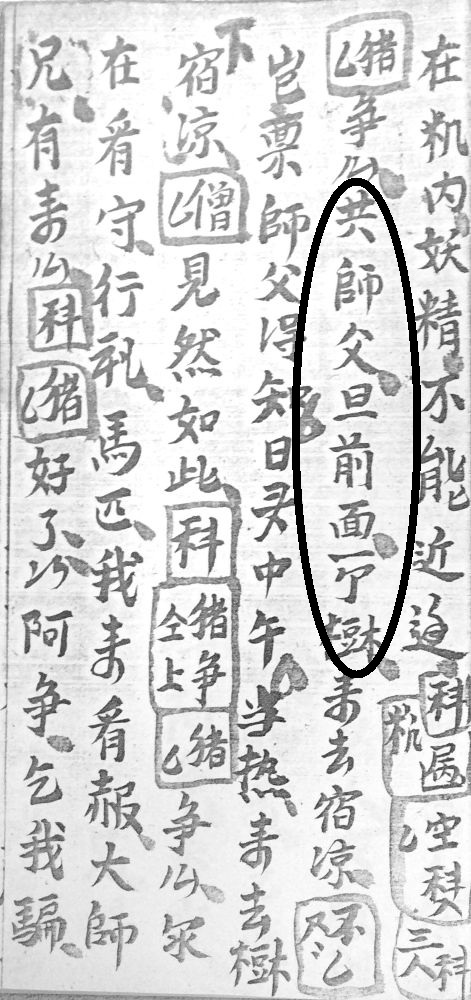 在内妖精不能近這科乙空科三人科
猪乙争厶共師父旦前面一个樹林来去宿凉不又乙
岂禀師父得知日中午当热来去樹林
下宿凉僧乙見然如此科猪争仝上猪乙争厶
在看守行礼馬匹我来看赧大師
兄有来厶科猪乙好了阿争乞我騙